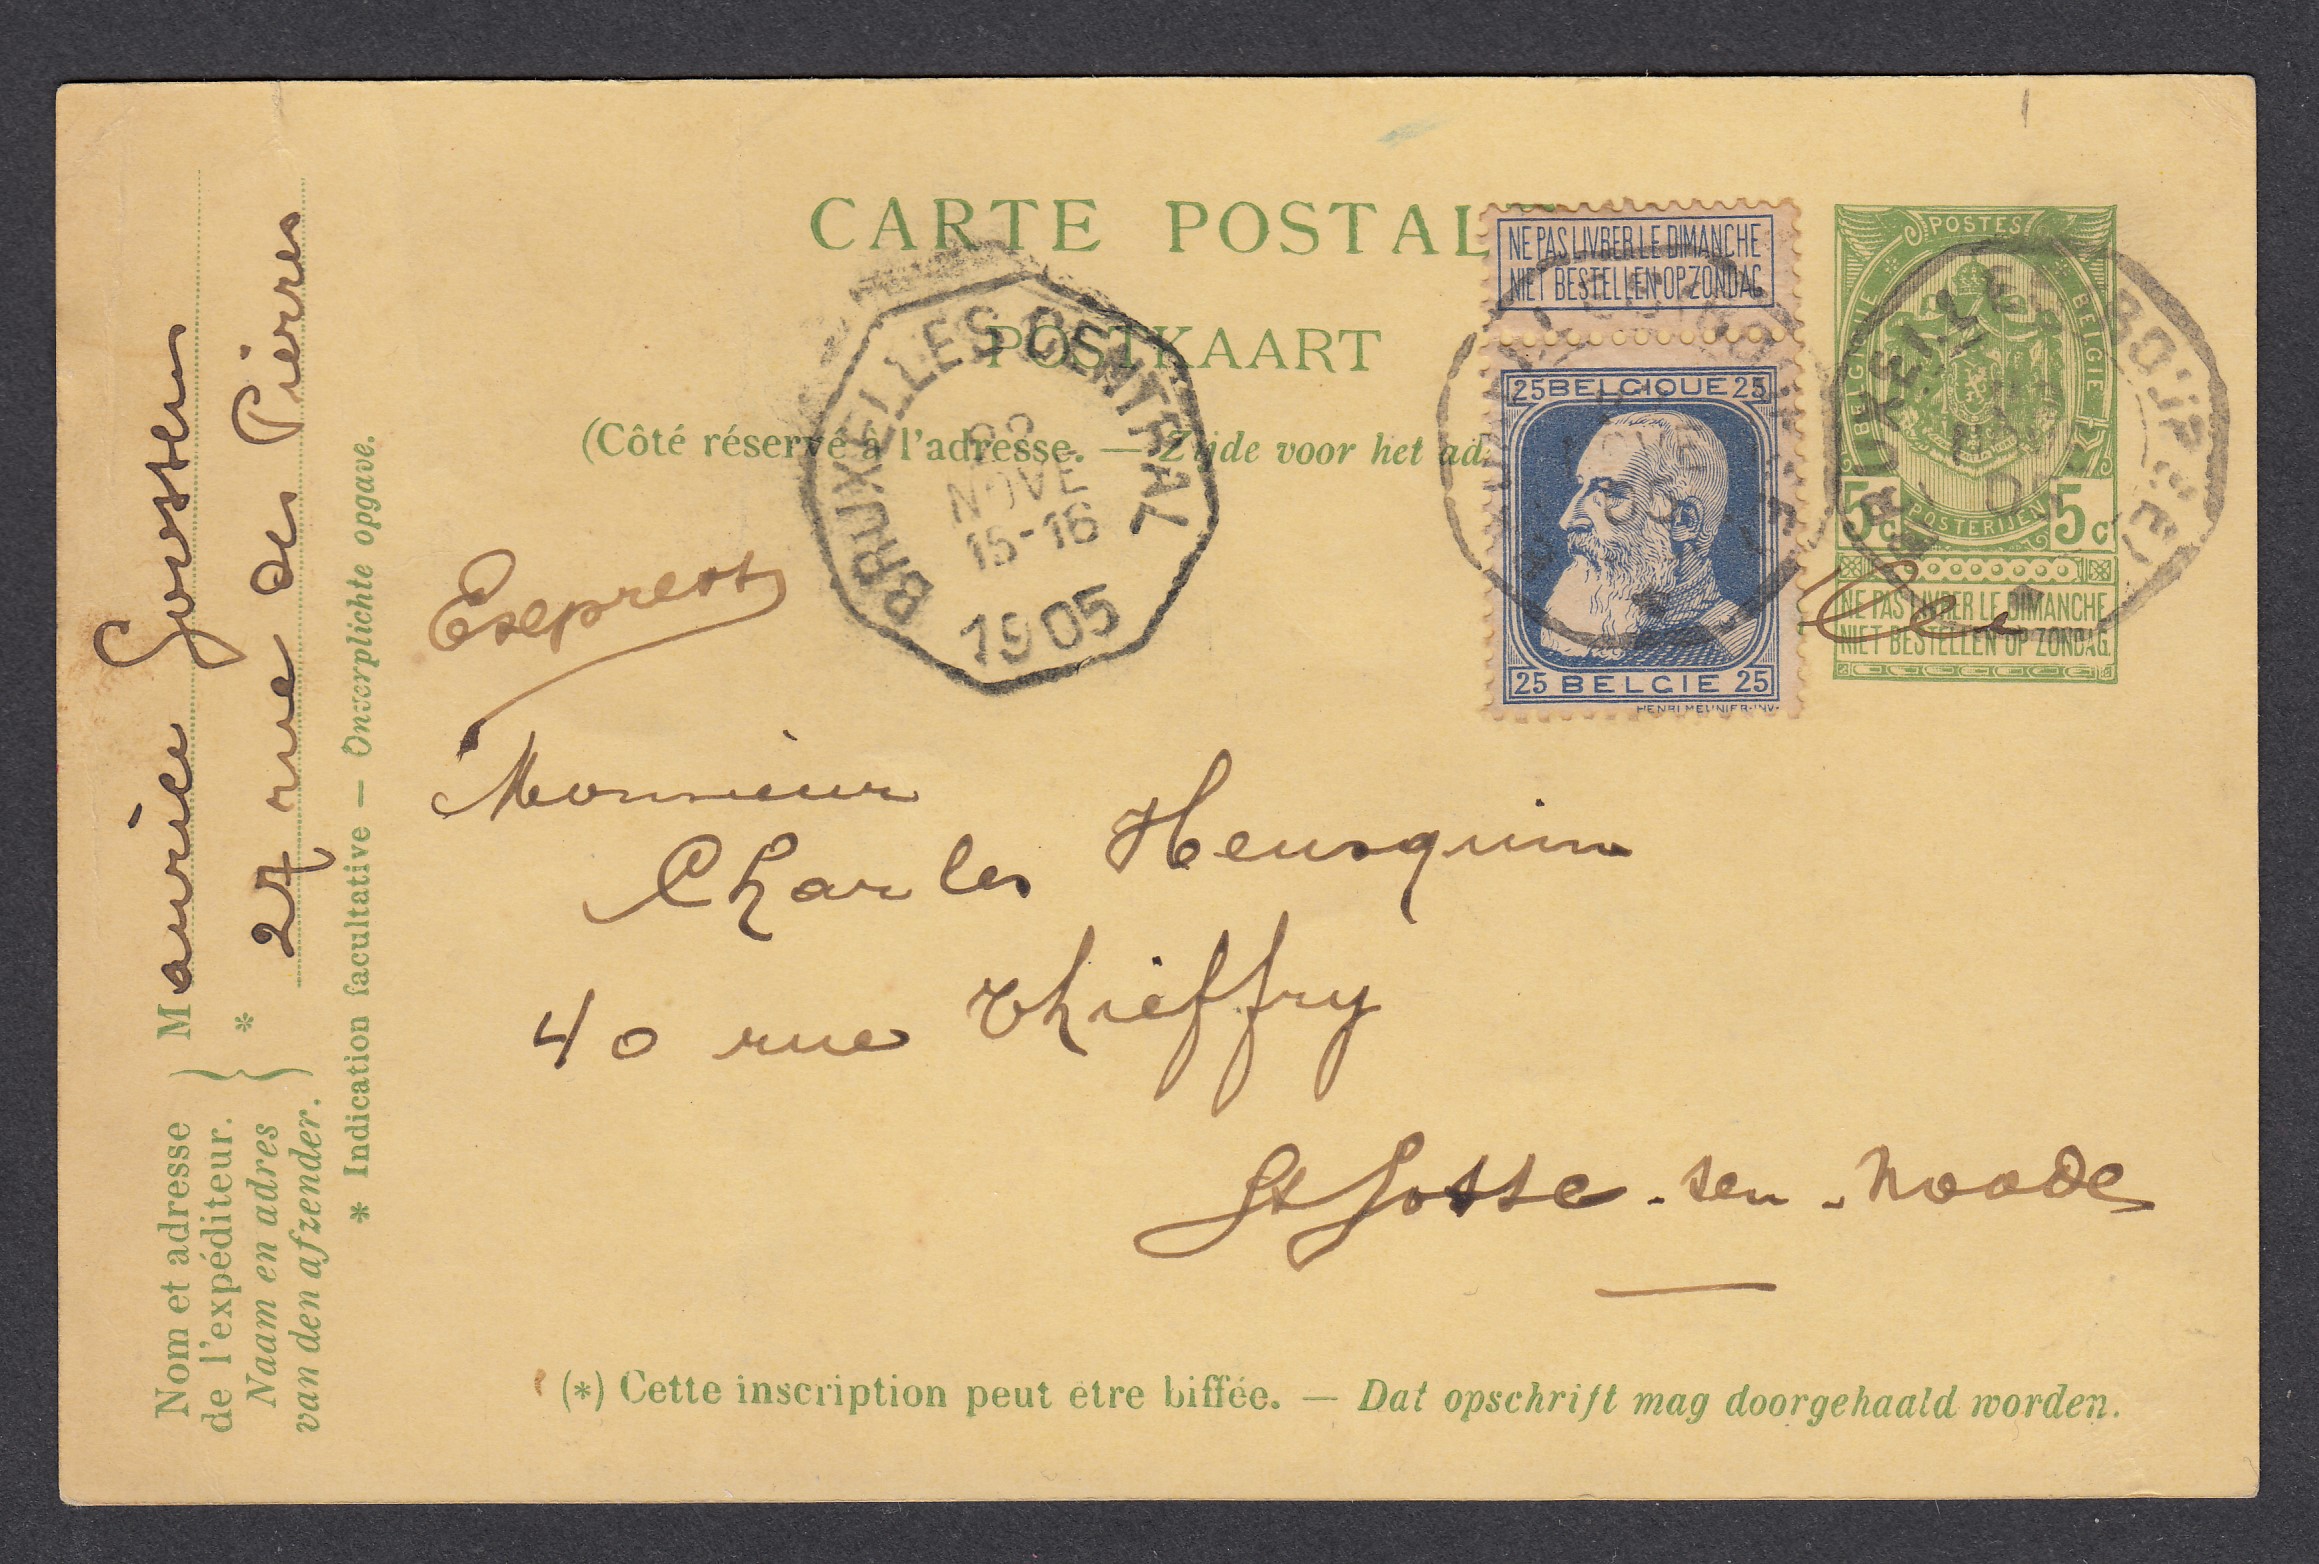 CARTE POSTAL
POSTKAART
(Côté réservé à l'adresse. — Zijde voor het ad
NE PAS LIVRER LE DIMANCHE
NIET BESTELLEN OP ZONDAG
25 BELGIQUE 25
25 BELGIE 25
HENRI MEUNIER·INV·
POSTES
BELGIQUE
BELGIE
POSTERIJEN
5c 5c
NE PAS LIVRER LE DIMANCHE
NIET BESTELLEN OP ZONDAG.
BRUXELLES CENTRAL
NOVE
15-16
1905
BRUXELLES
Monsieur
Charles Heusquin
40 rue Thieffry
St Josse-ten-Noode
(*) Cette inscription peut être biffée. — Dat opschrift mag doorgehaald worden.
Nom et adresse
de l'expéditeur.
Naam en adres
van den afzender.
Maurice Goossens
* 27 rue des Pierres
* Indication facultative — Onverplichte opgave.